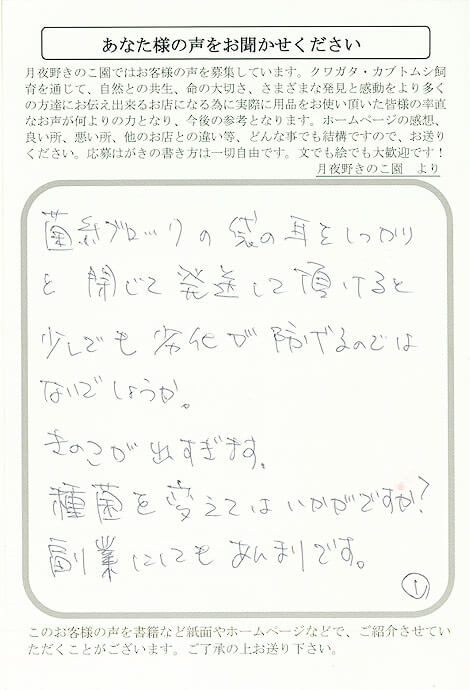 あなた様の声をお聞かせください
月夜野きのこ園ではお客様の声を募集しています。クワガタ・カブトムシ飼
育を通じて、自然との共生、命の大切さ、さまざまな発見と感動をより多く
の方達にお伝え出来るお店になる為に実際に用品をお使い頂いた皆様の率直
なお声が何よりの力となり、今後の参考となります。ホームページの感想、
良い所、悪い所、他のお店との違い等、どんな事でも結構ですので、お送り
ください。応募はがきの書き方は一切自由です。文でも絵でも大歓迎です！
月夜野きのこ園　より
菌糸ブロックの袋の耳をしっかり
と閉じて発送して頂けると
少しでも劣化が防げるのでは
ないでしょうか。
きのこが出すぎます。
種菌を変えてはいかがですか？
副業にしてもあんまりです。
1
このお客様の声を書籍など紙面やホームページなどで、ご紹介させてい
ただくことがございます。ご了承の上お送り下さい。